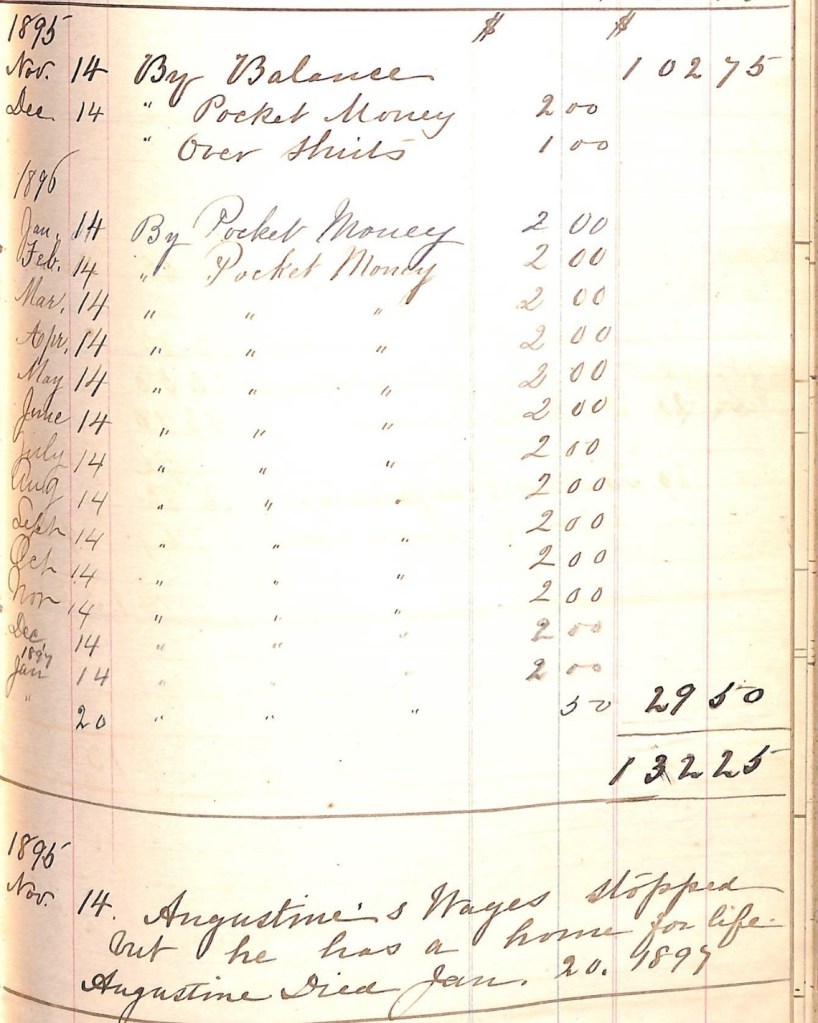 1895 $ $
Nov. 14 By Balance 102 75
Dec 14 " Pocket Money 2 00
" Over Shirts 1 00
1896
Jan. 14 By Pocket Money 2 00
Feb. 14 " Pocket Money 2 00
Mar. 14 " " " 2 00
Apr. 14 " " " 2 00
May 14 " " " 2 00
June 14 " " " 2 00
July 14 " " " 2 00
Aug 14 " " " 2 00
Sept 14 " " " 2 00
Oct 14 " " " 2 00
Nov 14 " " " 2 00
Dec 14 " " " 2 00
1897
Jan 14 " " " 2 00
" 20 " " " 50 29 50
132 25
1895
Nov. 14. Augustine's Wages stopped
but he has a home for life.
Augustine Died Jan. 20. 1897